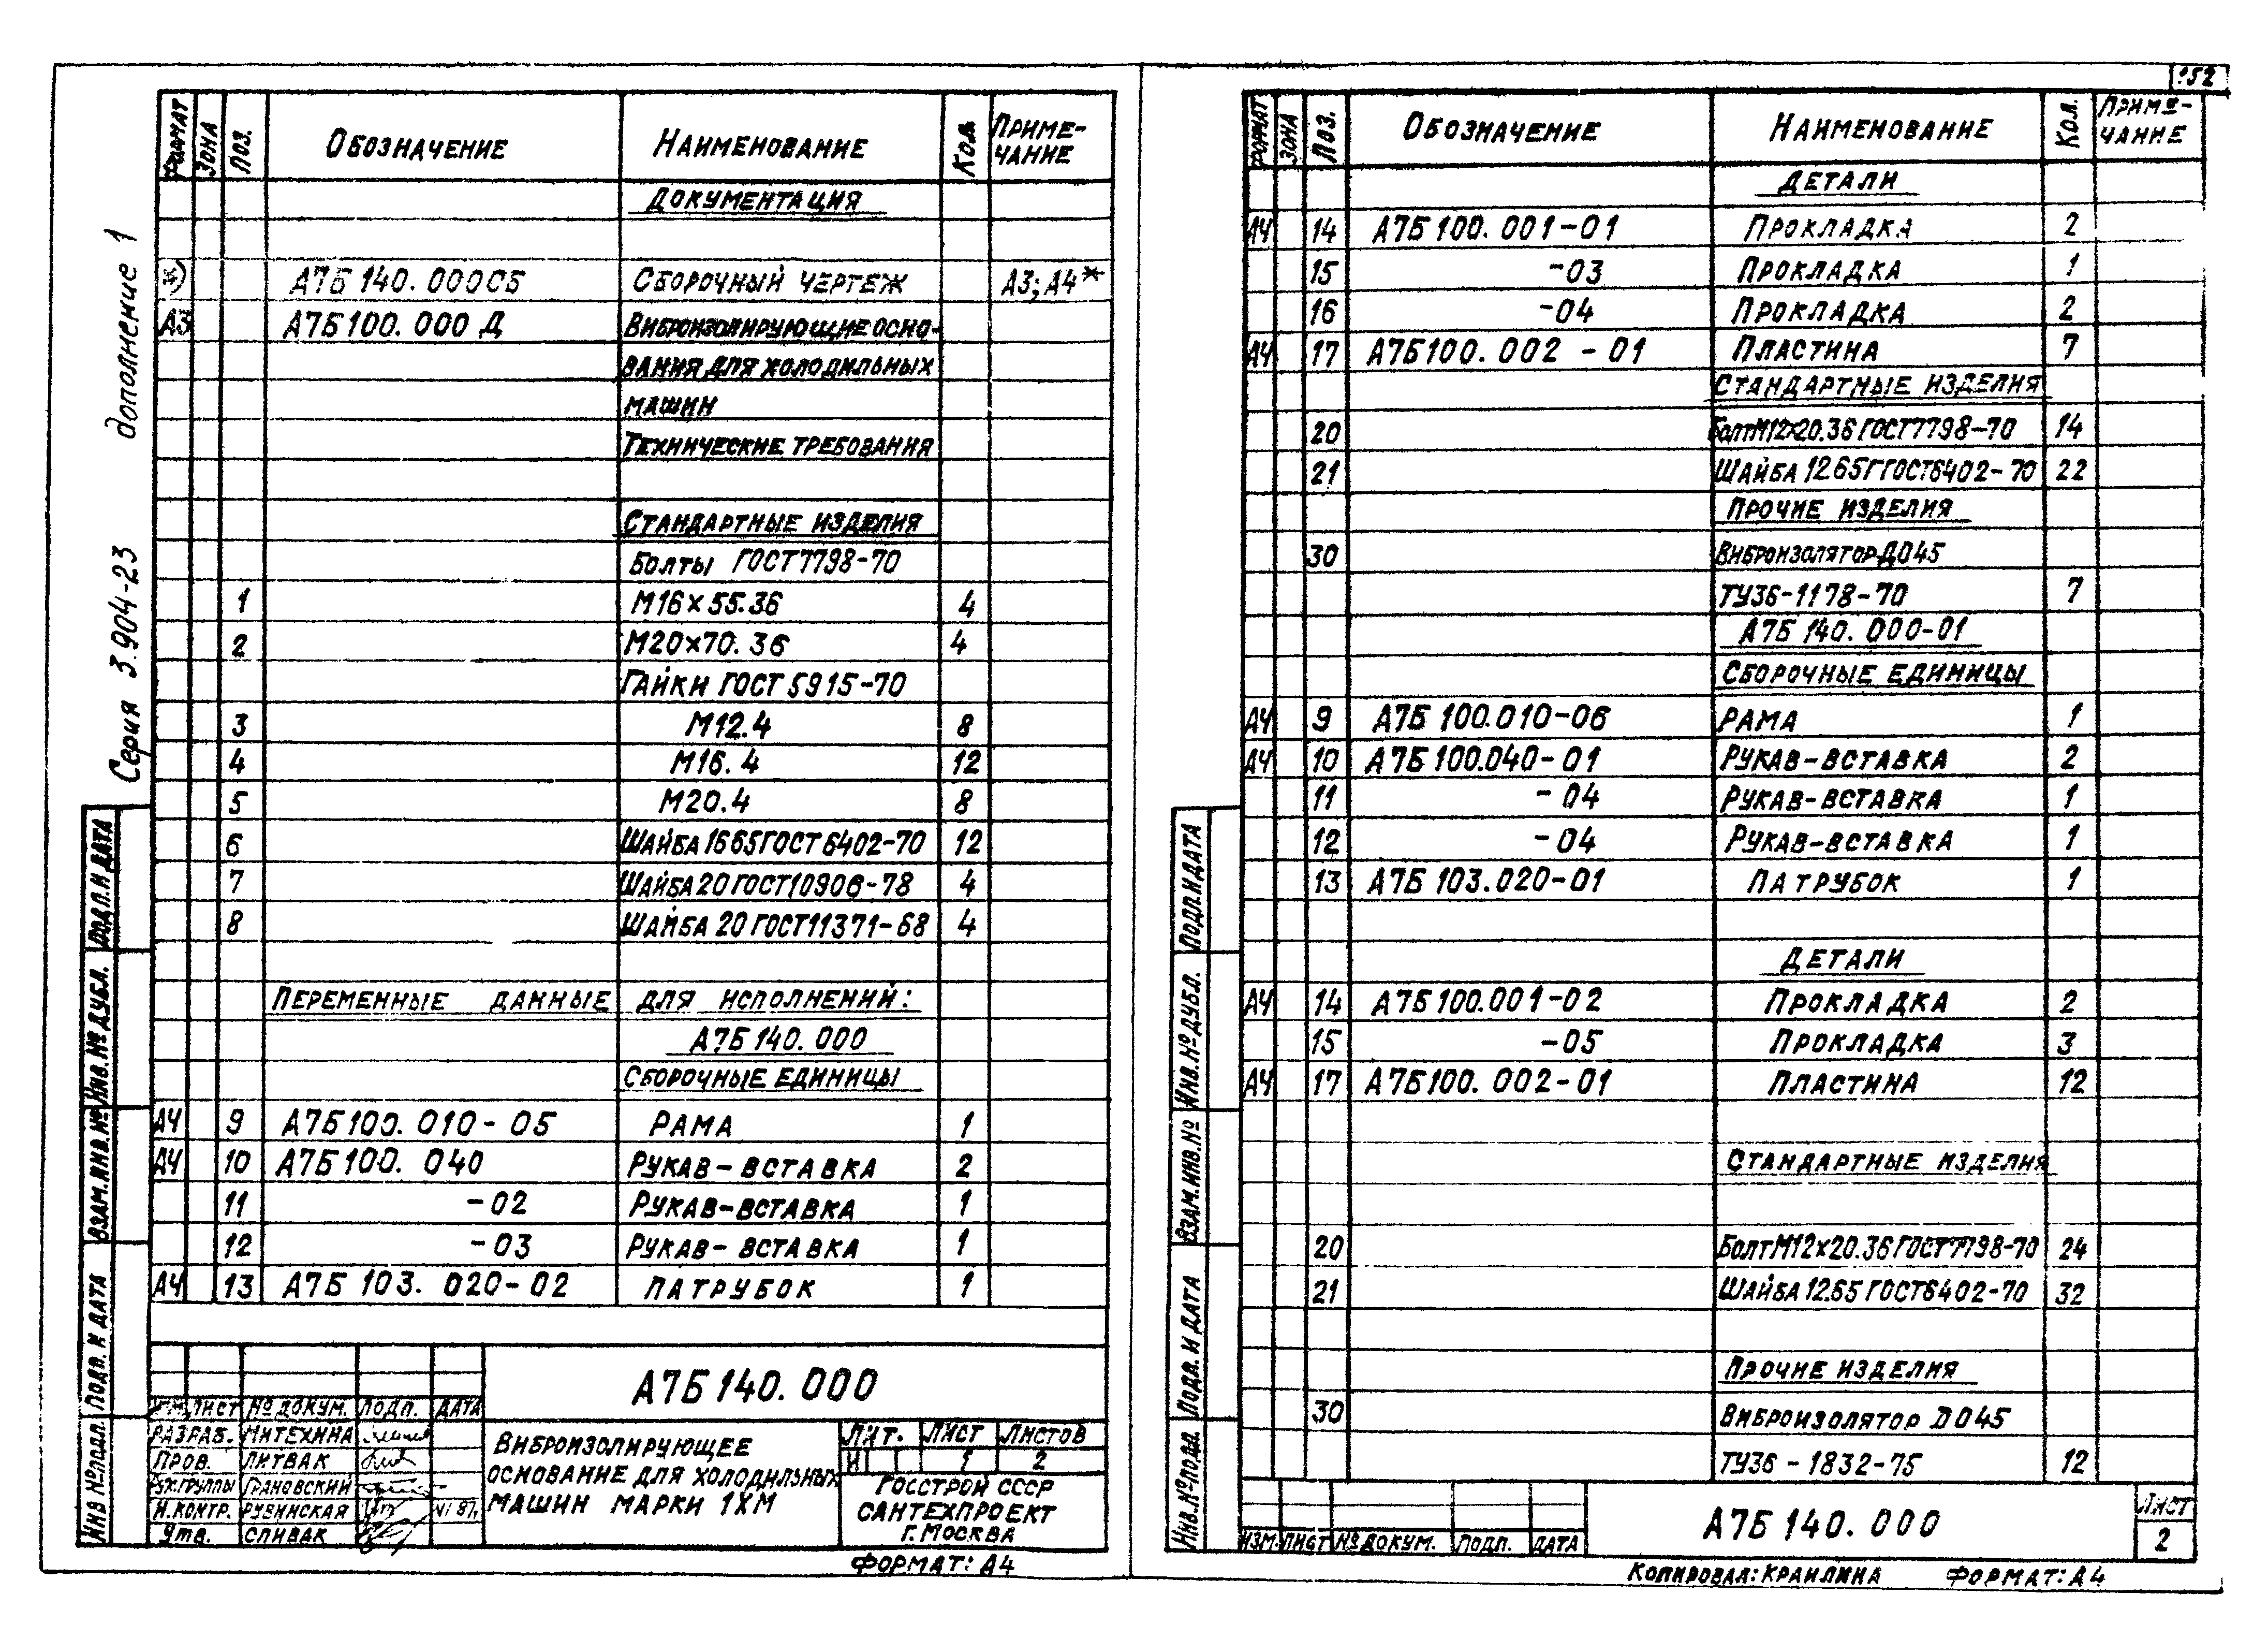 152
Серия 3.904-23 дополнение 1
ФОРМАТ ЗОНА ПОЗ. ОБОЗНАЧЕНИЕ НАИМЕНОВАНИЕ КОЛ. ПРИМЕ-
ЧАНИЕ
ДОКУМЕНТАЦИЯ
А7Б 140.000СБ СБОРОЧНЫЙ ЧЕРТЕЖ А3; А4*
А3 А7Б100.000 Д ВИБРОИЗОЛИРУЮЩИЕ ОСНО-
ВАНИЯ ДЛЯ ХОЛОДИЛЬНЫХ
МАШИН
ТЕХНИЧЕСКИЕ ТРЕБОВАНИЯ
СТАНДАРТНЫЕ ИЗДЕЛИЯ
БОЛТЫ ГОСТ7798-70
1 М16×55.36 4
2 М20×70.36 4
ГАЙКИ ГОСТ 5915-70
3 М12.4 8
4 М16.4 12
5 М20.4 8
6 ШАЙБА 16 65Г ГОСТ 6402-70 12
7 ШАЙБА 20 ГОСТ10906-78 4
8 ШАЙБА 20 ГОСТ11371-68 4
ПЕРЕМЕННЫЕ ДАННЫЕ ДЛЯ ИСПОЛНЕНИЙ:
А7Б 140.000
СБОРОЧНЫЕ ЕДИНИЦЫ
А4 9 А7Б100.010-05 РАМА 1
А4 10 А7Б100.040 РУКАВ-ВСТАВКА 2
11 -02 РУКАВ-ВСТАВКА 1
12 -03 РУКАВ-ВСТАВКА 1
А4 13 А7Б 103.020-02 ПАТРУБОК 1
ПОДП. И ДАТА
ИНВ. № ДУБЛ.
ВЗАМ. ИНВ. №
ПОДП. И ДАТА
ИНВ № ПОДЛ.
А7Б 140.000
ИЗМ. ЛИСТ № ДОКУМ. ПОДП. ДАТА
РАЗРАБ. МИТЕХИНА
ПРОВ. ЛИТВАК
РУК.ГРУППЫ ГРАНОВСКИЙ
Н.КОНТР. РУБИНСКАЯ VI 87г.
УТВ. СПИВАК
ВИБРОИЗОЛИРУЮЩЕЕ
ОСНОВАНИЕ ДЛЯ ХОЛОДИЛЬНЫХ
МАШИН МАРКИ 1ХМ
ЛИТ. ЛИСТ ЛИСТОВ
И 1 2
ГОССТРОЙ СССР
САНТЕХПРОЕКТ
Г. МОСКВА
ФОРМАТ: А4
ФОРМАТ ЗОНА ПОЗ. ОБОЗНАЧЕНИЕ НАИМЕНОВАНИЕ КОЛ. ПРИМЕ-
ЧАНИЕ
ДЕТАЛИ
А4 14 А7Б 100.001-01 ПРОКЛАДКА 2
15 -03 ПРОКЛАДКА 1
16 -04 ПРОКЛАДКА 2
А4 17 А7Б100.002-01 ПЛАСТИНА 7
СТАНДАРТНЫЕ ИЗДЕЛИЯ
20 БОЛТ М12×20.36 ГОСТ7798-70 14
21 ШАЙБА 12.65Г ГОСТ6402-70 22
ПРОЧИЕ ИЗДЕЛИЯ
30 ВИБРОИЗОЛЯТОР ДО45
ТУ36-1178-70 7
А7Б 140.000-01
СБОРОЧНЫЕ ЕДИНИЦЫ
А4 9 А7Б 100.010-06 РАМА 1
А4 10 А7Б 100.040-01 РУКАВ-ВСТАВКА 2
11 -04 РУКАВ-ВСТАВКА 1
12 -04 РУКАВ-ВСТАВКА 1
13 А7Б 103.020-01 ПАТРУБОК 1
ДЕТАЛИ
А4 14 А7Б 100.001-02 ПРОКЛАДКА 2
15 -05 ПРОКЛАДКА 3
А4 17 А7Б100.002-01 ПЛАСТИНА 12
СТАНДАРТНЫЕ ИЗДЕЛИЯ
20 БОЛТ М12×20.36 ГОСТ7798-70 24
21 ШАЙБА 12.65 ГОСТ6402-70 32
ПРОЧИЕ ИЗДЕЛИЯ
30 ВИБРОИЗОЛЯТОР DО45
ТУ36-1832-75 12
ПОДП. И ДАТА
ИНВ. № ДУБЛ.
ВЗАМ. ИНВ. №
ПОДП. И ДАТА
ИНВ. № ПОДЛ.
ИЗМ. ЛИСТ № ДОКУМ. ПОДП. ДАТА
А7Б 140.000
ЛИСТ
2
КОПИРОВАЛ: КРАИЛИНА ФОРМАТ: А4